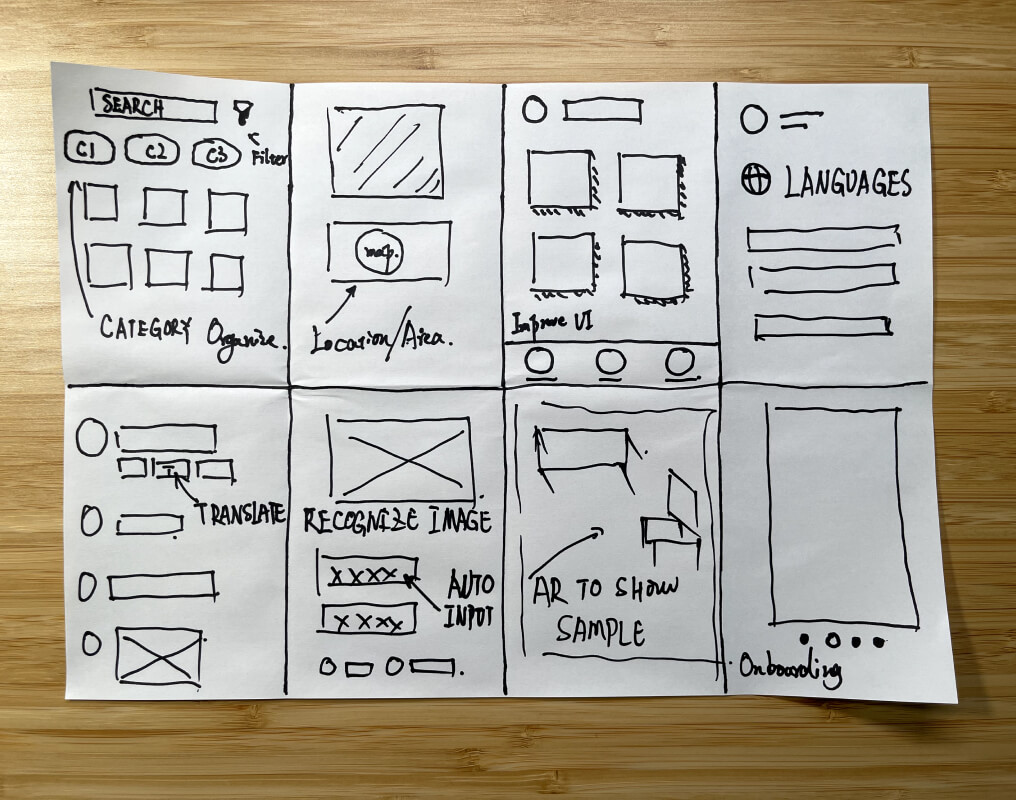 SEARCH
Filter
C1 C2 C3
CATEGORY Organize.
map.
Location/Area.
Improve UI
LANGUAGES
T
TRANSLATE
RECOGNIZE IMAGE
XXXX
AUTO
INPUT
XXXX
AR TO SHOW
SAMPLE
Onboarding